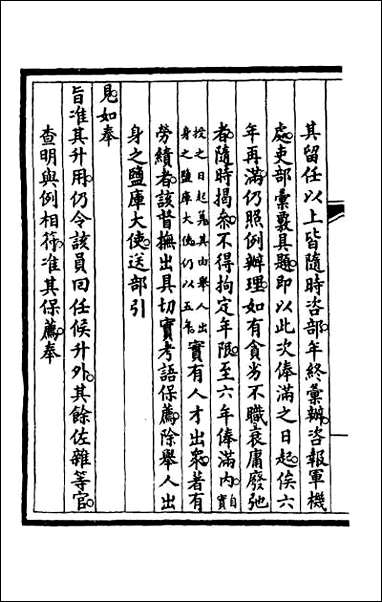 其留任以上皆隨時咨部年終彙辦咨報軍機
處吏部彙覈具題即以此次俸滿之日起俟六
年再滿仍照例辦理如有貪劣不職衰庸廢弛
者隨時揭叅不得拘定年限至六年俸滿內自實
授之日起美其由舉人出身之鹽庫大使仍以五年實有人才出衆著有
勞績者該督撫出具切實考語保薦除舉人出
身之鹽庫大使送部引
見如奉
旨准其升用仍令該員回任候升外其餘佐雜等官
查明與例相符准其保薦奉